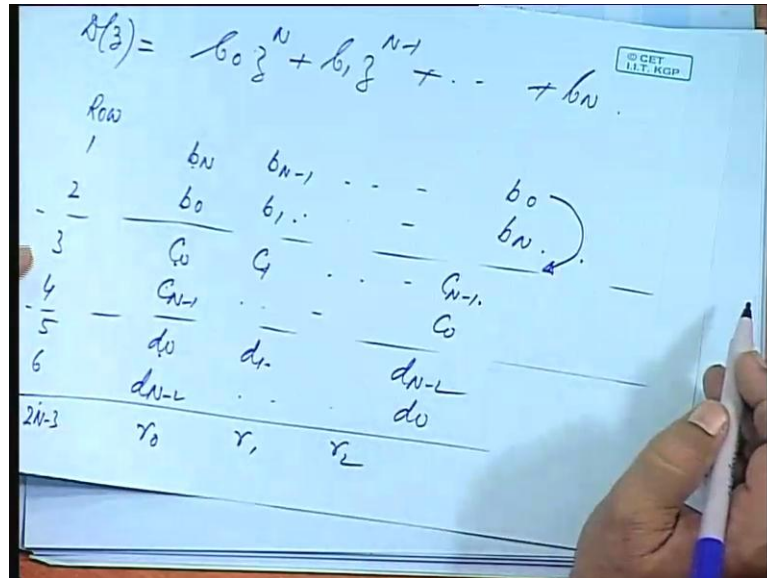 D(z) = b₀ z^N + b₁ z^(N-1) + - - + b_N .
© CET
I.I.T. KGP
Row
1 b_N b_(N-1) - - - b₀
2 b₀ b₁ . . - b_N .
3 C₀ C₁ . . - C_(N-1) .
4 C_(N-1) . . - C₀
5 d₀ d₁ - d_(N-2)
6 d_(N-2) . . . d₀
2N-3 r₀ r₁ r₂